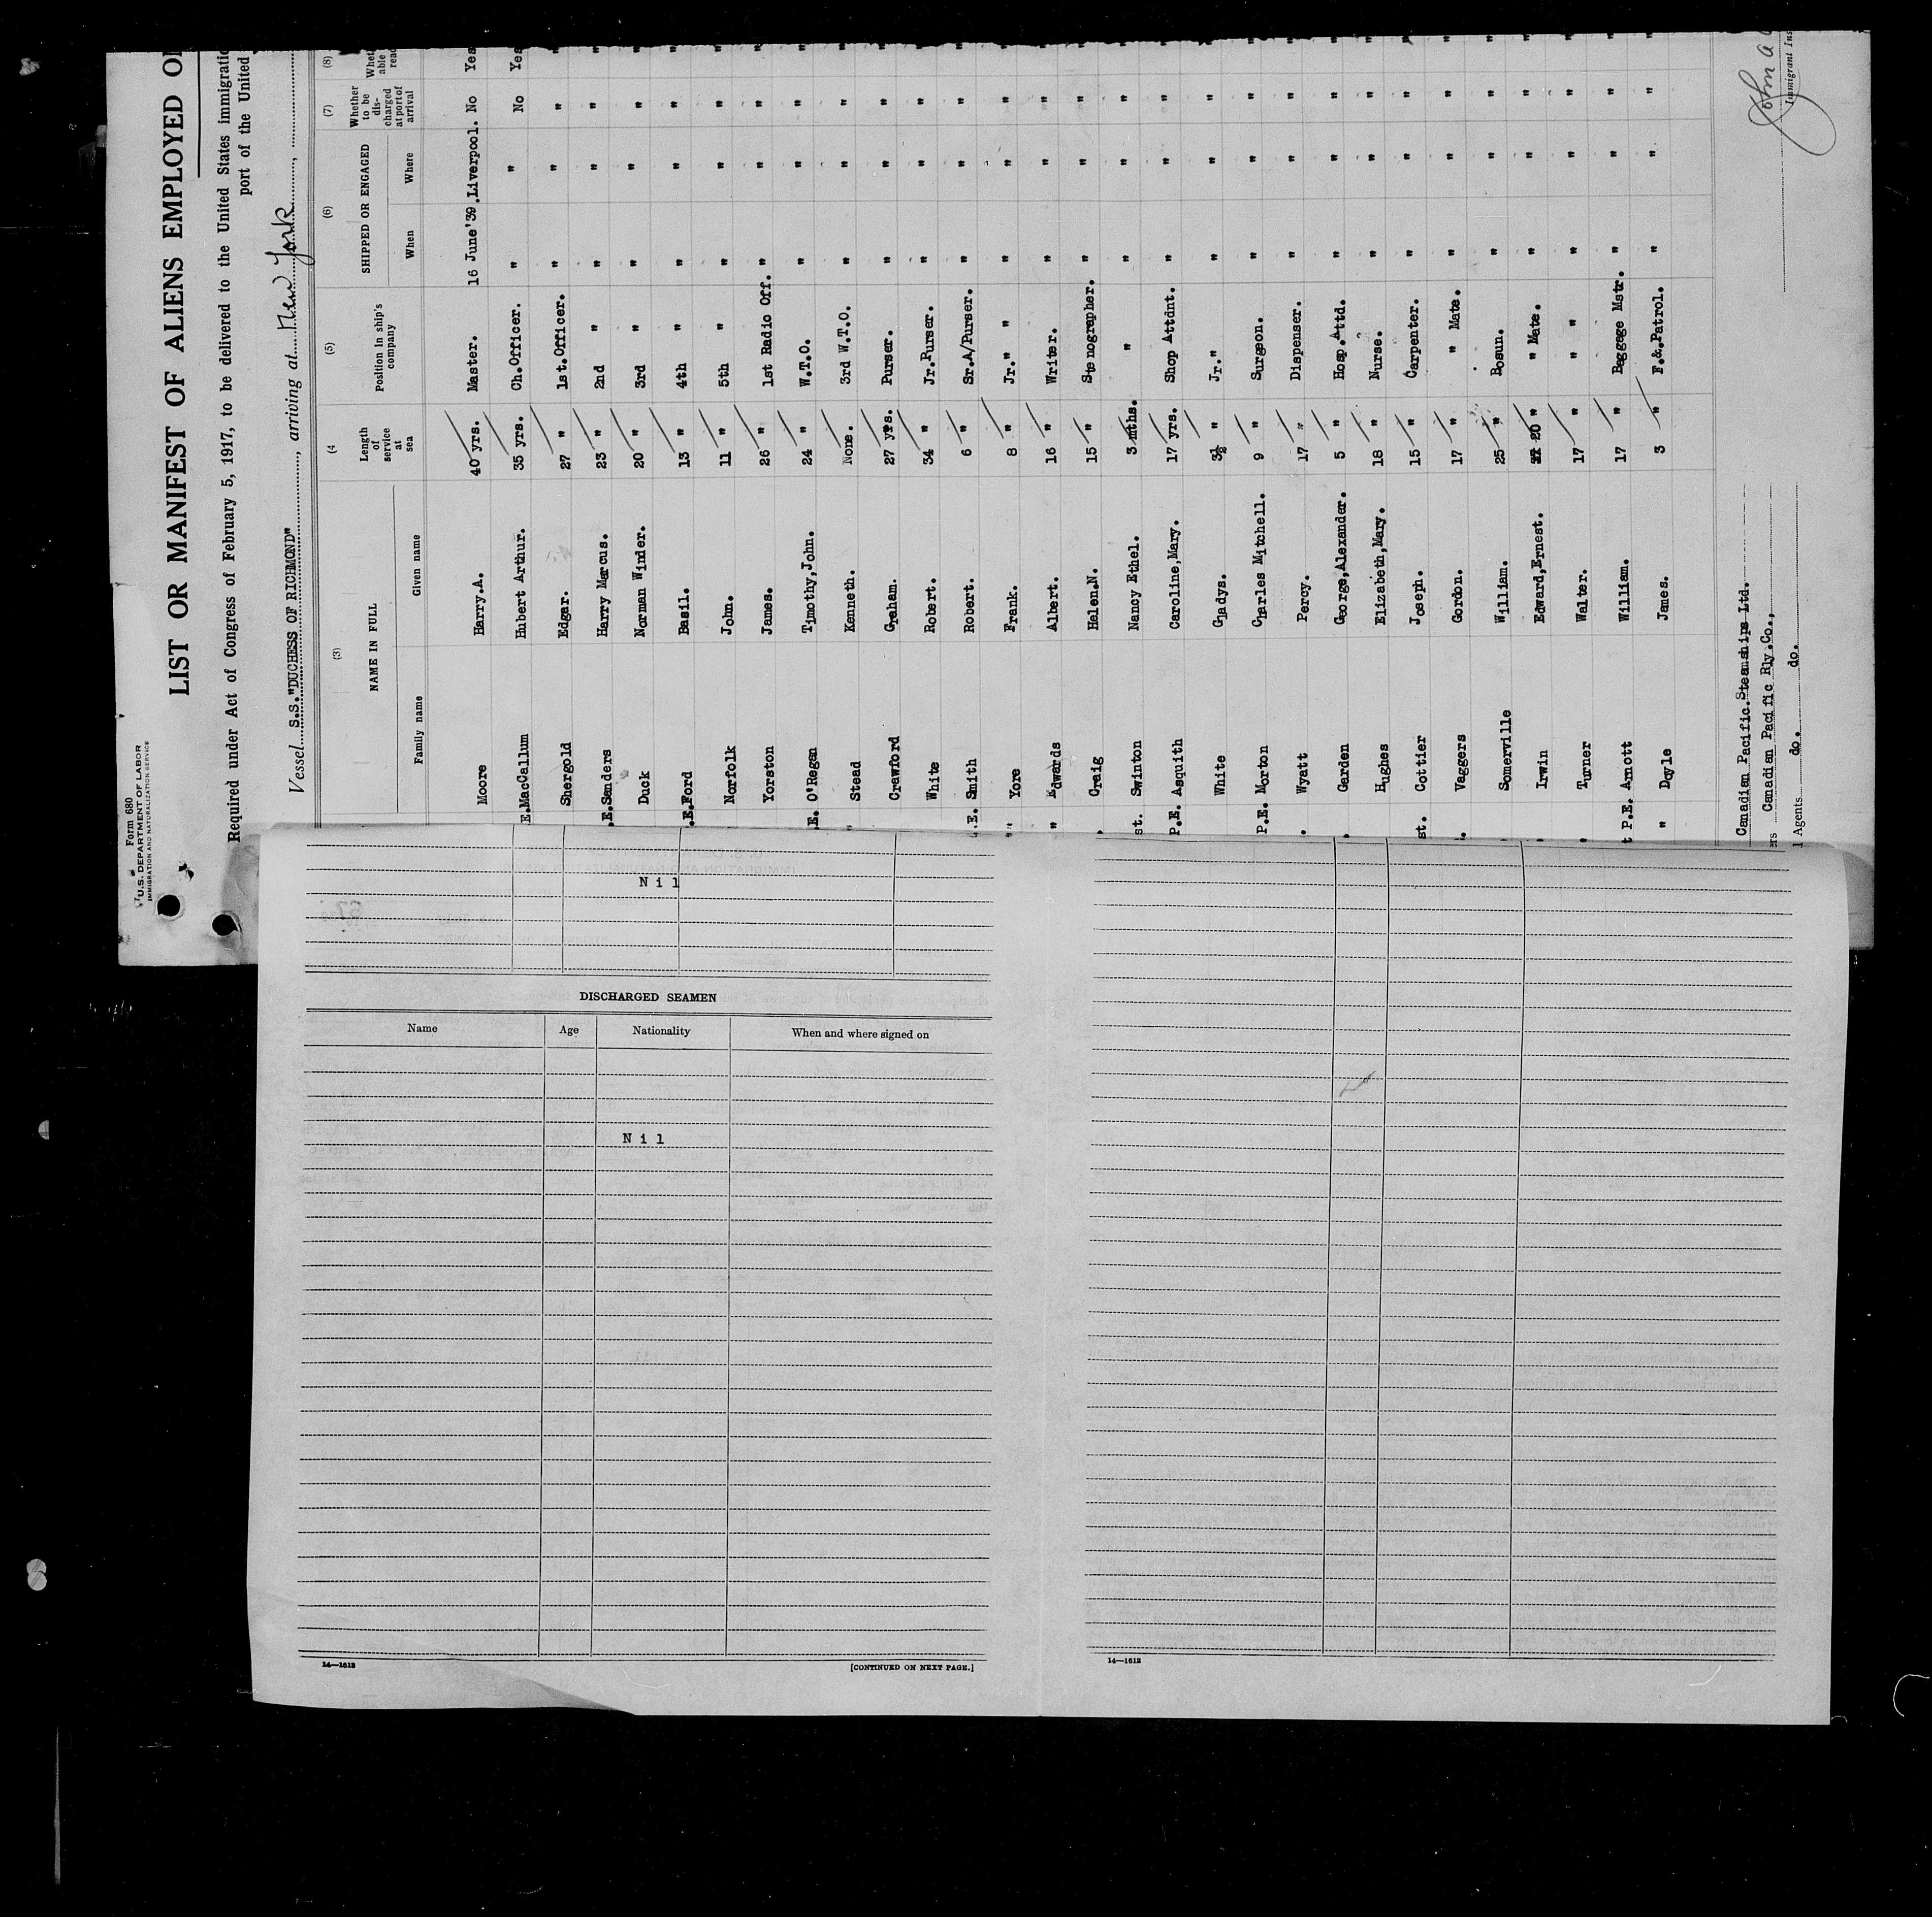 Form 680
U.S. DEPARTMENT OF LABOR
IMMIGRATION AND NATURALIZATION SERVICE
LIST OR MANIFEST OF ALIENS EMPLOYED ON
Required under Act of Congress of February 5, 1917, to be delivered to the United States immigratio
port of the United
Vessel S.S."DUCHESS OF RICHMOND", arriving at New York,
(3) (4 (5) (6) (7) (8)
NAME IN FULL Length of service at sea Position in ship's company SHIPPED OR ENGAGED Whether to be discharged at port of arrival
Family name Given name When Where
Moore Harry.A. 40 yrs. Master. 16 June'39. Liverpool. No Yes
E.MacCallum Hubert Arthur. 35 yrs. Ch.Officer. " " No Yes
Shergold Edgar. 27 " 1st.Officer. " " " "
.E.Sanders Harry Marcus. 23 " 2nd " " " " "
Duck Norman Winder. 20 " 3rd " " " " "
.E.Ford Basil. 13 " 4th " " " " "
Norfolk John. 11 " 5th " " " " "
Yorston James. 26 " 1st Radio Off. " " " "
.E. O'Regan Timothy,John. 24 " W.T.O. " " " "
" Stead Kenneth. None. 3rd W.T.O. " " " "
Crawford Graham. 27 yrs. Purser. " " " "
White Robert. 34 " Jr.Purser. " " " "
.E. Smith Robert. 6 " Sr.A/Purser. " " " "
" Yore Frank. 8 " Jr." " " " " "
" Edwards Albert. 16 " Writer. " " " "
Craig Helen.N. 15 " Stenographer. " " " "
st. Swinton Nancy Ethel. 3 mths. " " " " "
P.E. Asquith Caroline,Mary. 17 yrs. Shop Attdnt. " " " "
White Gladys. 3½ " Jr." " " " "
P.E. Morton Charles Mitchell. 9 " Surgeon. " " " "
. Wyatt Percy. 17 " Dispenser. " " " "
Garden George,Alexander. 5 " Hosp.Attd. " " " "
Hughes Elizabeth,Mary. 18 " Nurse. " " " "
st. Cottier Joseph. 15 " Carpenter. " " " "
. Vaggers Gordon. 17 " " Mate. " " " "
Somerville William. 25 " Bosun. " " " "
Irwin Edward,Ernest. 20 " " Mate. " " " "
" Turner Walter. 17 " " " " " " "
t P.E. Arnott William. 17 " Baggage Mstr. " " " "
" Doyle James. 3 " F.&.Patrol. " " " "
Canadian Pacific.Steamships Ltd.
ers Canadian Pacific Rly.Co.,
l Agents do. do.
John A
Immigrant Ins
Nil
DISCHARGED SEAMEN
Name Age Nationality When and where signed on
Nil
14—1613 [CONTINUED ON NEXT PAGE.]
14—1613